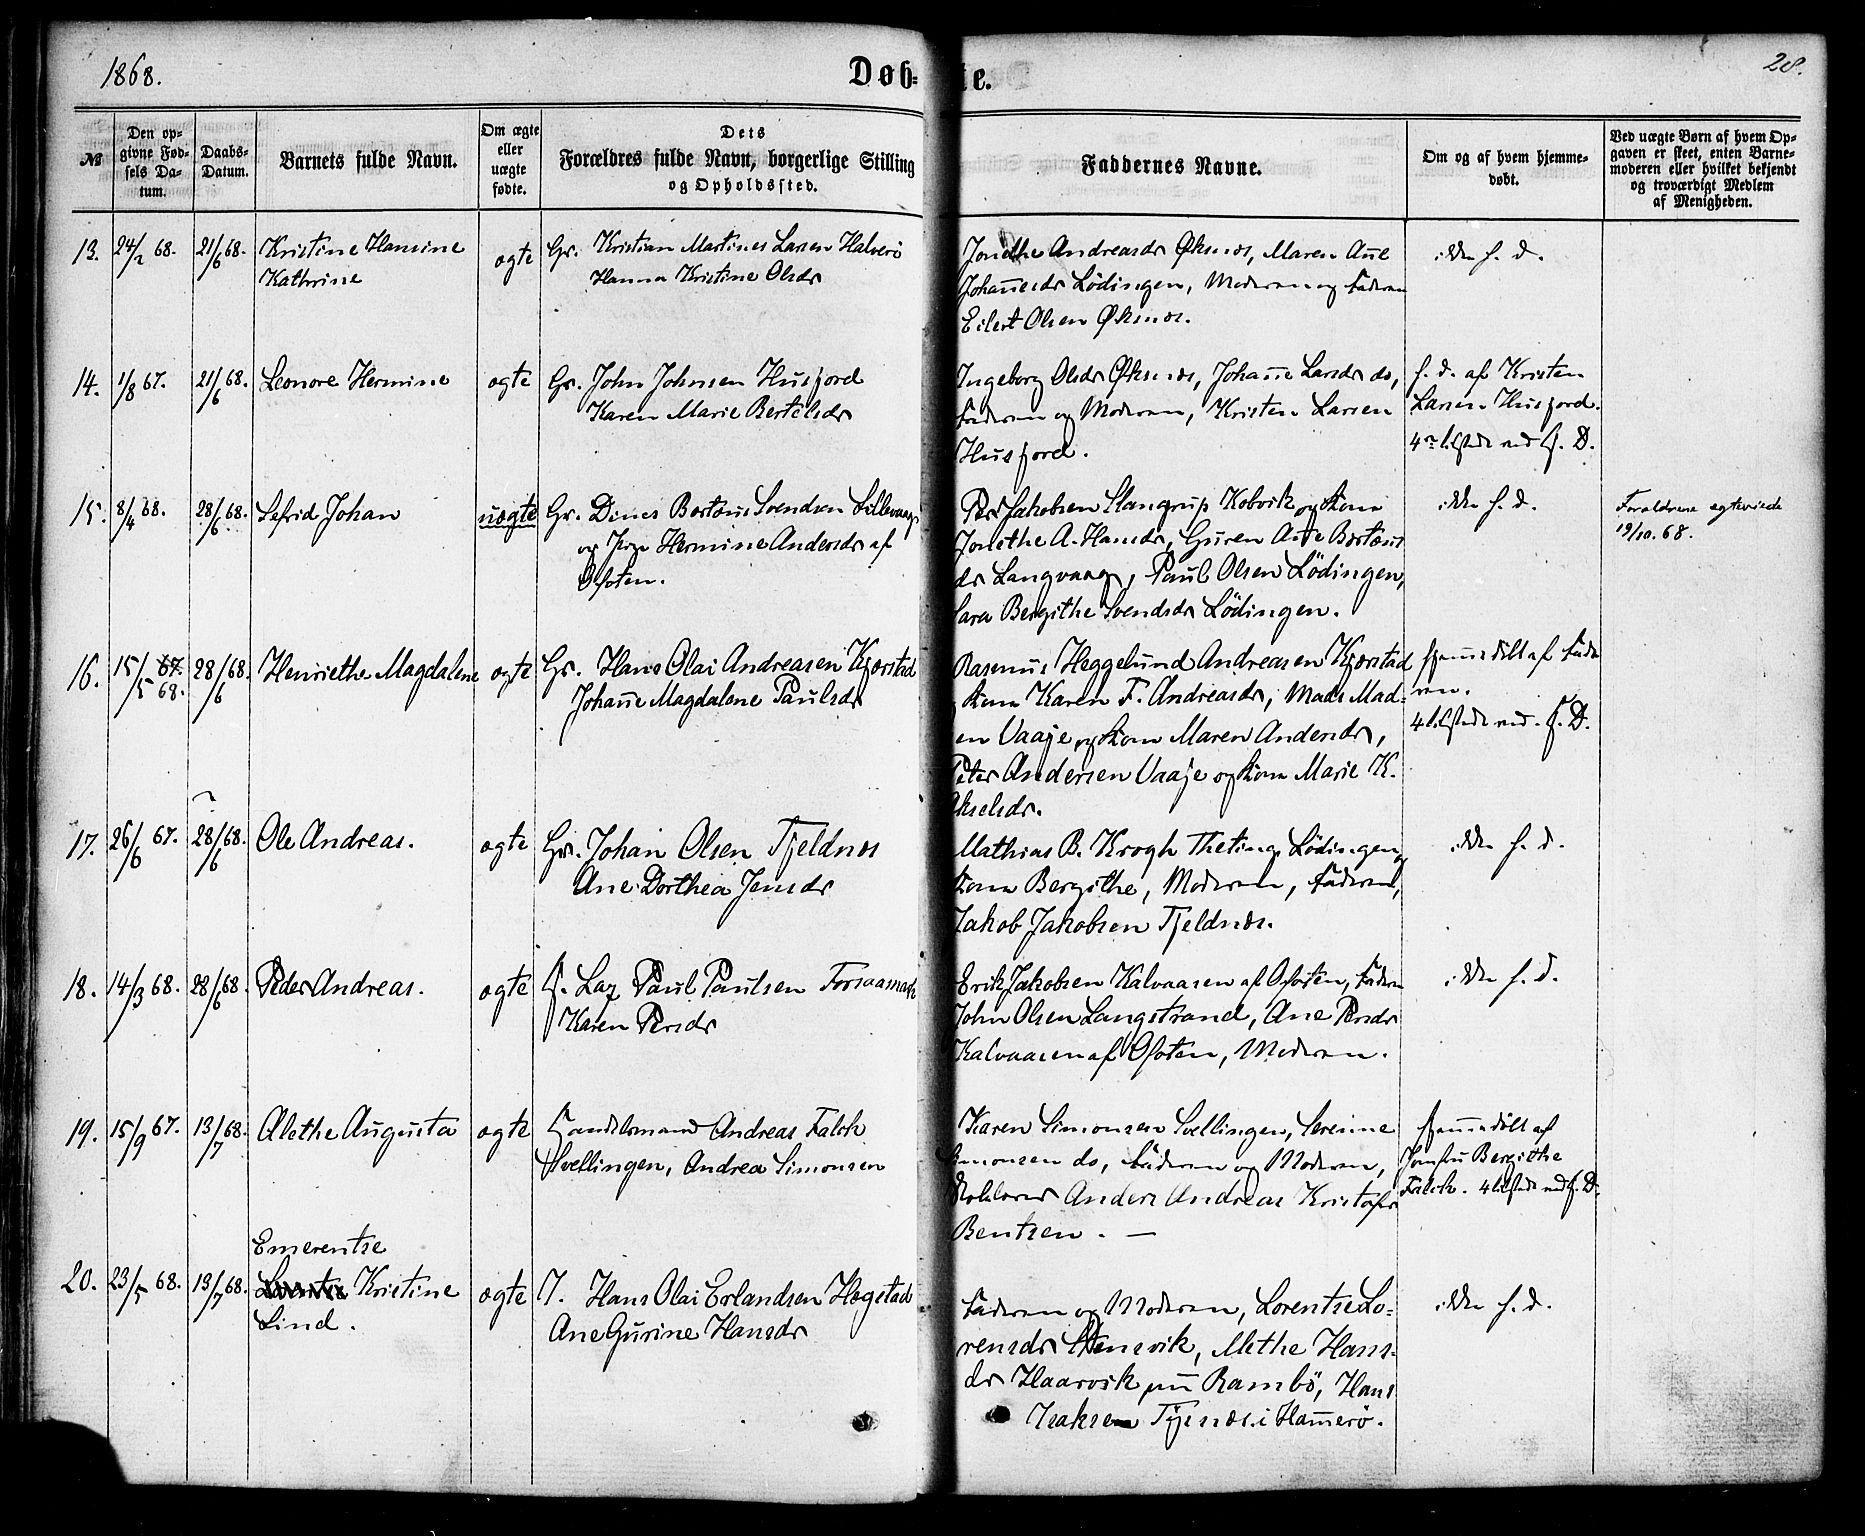 1868.
Døb-
te.
28.
№
Den op-
givne Fød-
sels Da-
tum.
Daabs-
Datum.
Barnets fulde Navn.
Om ægte
eller
uægte
fødte.
Dets
Forældres fulde Navn, borgerlige Stilling
og Opholdssted.
Faddernes Navne.
Om og af hvem hjemme-
døbt.
Ved uægte Børn af hvem Op-
gaven er skeet, enten Barne-
moderen eller hvilket bekjendt
og troværdigt Medlem
af Menigheden.
13. 24/2 68. 21/6 68. Kristine Hansine
Kathrine
ægte
Gr. Kristian Martines Larsen Halverö
Hanna Kristine Olsdr
Jonethe Andreasdr Øksnæs, Maren Ane
Johannesdr Lödingen, Moderen og Faderen
Eilert Olsen Øksnæs.
ikke h. d.
14. 1/8 67. 21/6 68. Leonore Hermine
ægte
Gr. John Johnsen Husjord
Karen Marie Bertelsdr
Ingeborg Olsdr Øksnæs, Johanne Larsdr do,
Faderen og Moderen, Kristen Larsen
Husjord.
h. d. af Kristen
Larsen Husjord.
4 tilstede ved H. D.
15. 8/4 68. 28/6 68. Sefrid Johan
uægte
Gr. Dines Bertëus Svendsen Sillevaag
og Hermine Andersdr af
Ofoten.
Per Jakobsen Slangrup Kobvik og Kone
Jonethe A. Hansdr, Guren Ane Bertëus
dr Langvaag, Paul Olsen Lödingen,
Sara Bergithe Svendsdr Lödingen.
ikke h. d.
Forældrene egteviede
19/10. 68.
16. 15/5 67. 68. 28/6 68. Henriethe Magdalene
ægte
Gr. Hans Olai Andreasen Kjørstad
Johanne Magdalene Paulsdr
Rasmus Heggelund Andreasen Kjørstad
Kone Karen F. Andreasdr, Mads Mad-
en Vaaje og Kone Maren Andersdr,
Peter Andersen Vaaje og Kone Marie K.
Akselsdr.
hjemmedöbt af Fade
ren.
4 tilstede ved H. D.
17. 26/6 67. 28/6 68. Ole Andreas.
ægte
Gr. Johan Olsen Tjeldnæs
Ane Dorthea Jensdr
Mathias B. Krogh Theting Lödingen og
Kone Bergithe, Moderen, Faderen,
Jakob Jakobsen Tjeldnæs.
ikke h. d.
18. 14/3 68. 28/6 68. Peder Andreas.
ægte
F. Lap Paul Paulsen Forsaamark
Karen Persdr
Erik Jakobsen Kalvaasen af Ofoten, Faderen
John Olsen Langstrand, Ane Persdr
Kalvaasen af Ofoten, Moderen.
ikke h. d.
19. 15/9 67. 13/7 68. Alethe Augusta
ægte
Handelsmand Andreas Falch
Svellingen, Andrea Simonsen
Karen Simonsen Svellingen, Serenne
Simonsen do, Faderen og Moderen,
Anders Andreas Kristofer
Bentzen. —
hjemmedöbt af
Jomfru Bergithe
Falch. 4 tilstede ved H. D.
20. 23/5 68. 13/7 68. Emerentse
Kristine
Lind.
ægte
I. Hans Olai Erlandsen Hægstad
Ane Gurine Hansdr
Faderen og Moderen, Lorentse Lo-
rensdr Stensvik, Methe Hans-
dr Haarvik paa Rambö, Hans
Isaksen Tysnæs i Hamerö.
ikke h. d.